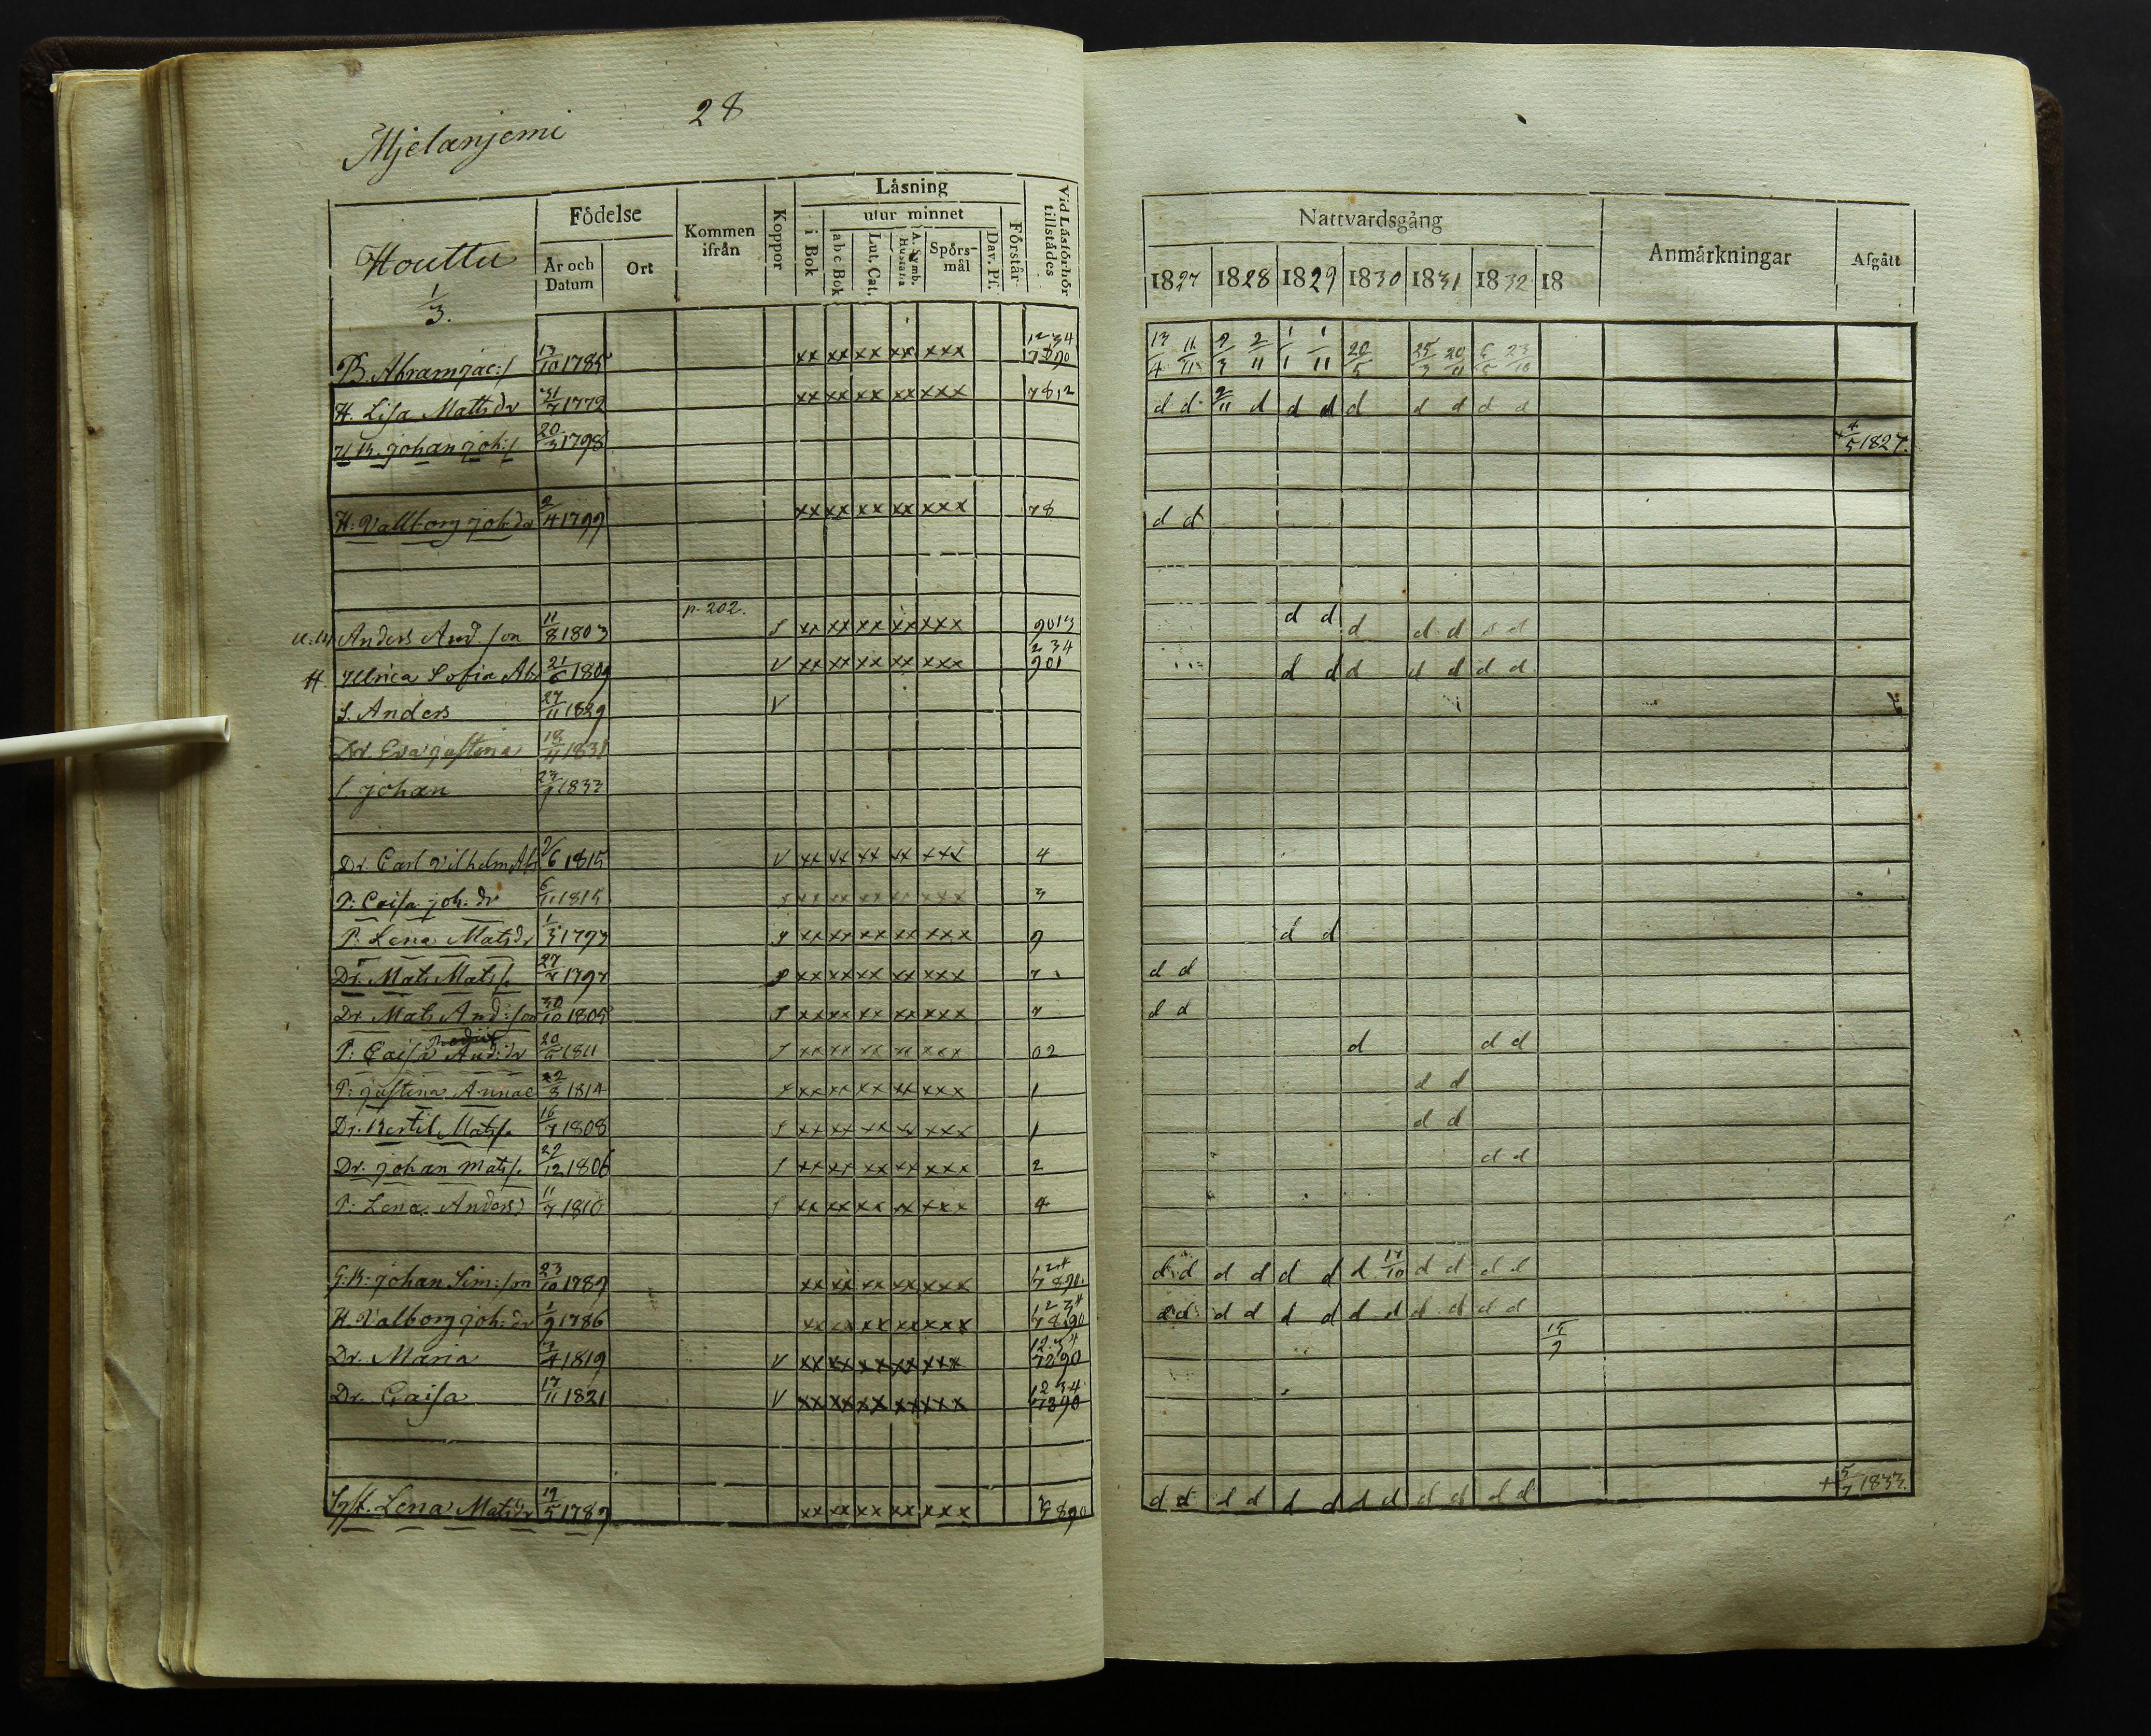 Mjelänjemi 28
Houttu
1/3.
Födelse
År och Datum
Ort
Kommen ifrån
Koppor
Läsning
i Bok
utur minnet
abc Bok
Lut. Cat.
A. Symb. Hustafla
Spörsmål
Dav. Ps.
Förstår
Vid Läsförhör tillstädes
Nattvardsgång
1827 1828 1829 1830 1831 1832 18
Anmärkningar
Afgått
B. Abram Jac:s 13/10 1785 xx xx xx xx xxx 1234 7890 13/4 11/11 2/3 2/11 1/1 1/11 20/5 25/3 20/11 6/5 23/10
H. Lisa Matts dr 31/7 1772 xx xx xx xx xxx 7812 d d 2/11 d d d d d d d d
Johan Joh:s 20/3 1798 4/5 1827.
H: Vallborg Joh dr 2/4 1799 xx xx xx xx xxx 78 d d
p. 202.
Anders And:son 11/8 1803 S xx xx xx xx xxx 9013 d d d d d d d
H. Ulrica Sofia Abr 21/6 1809 V xx xx xx xx xxx 234 901 d d d d d d d
S. Anders 27/11 1829 V
Dr. Eva Justina 18/11 1831
S. Johan 23/9 1833
Dr. Carl Vilhelm Abr 1/6 1815 V xx xx xx xx xxx 4
P: Caisa Joh. dr 6/11 1815 S xx xx xx xx xxx 3
P: Lena Mats dr 1/3 1793 S xx xx xx xx xxx 9 d d
Dr. Mats Mats s. 27/7 1797 S xx xx xx xx xxx 7 d d
Dr Mats And:son 30/10 1805 S xx xx xx xx xxx 7 d d
P: Caisa And:dr 20/6 1811 S xx xx xx xx xxx 02 d d d
P: Justina Annae 22/8 1814 S xx xx xx xx xxx 1 d d
Dr. Bertil Mats s. 16/7 1808 S xx xx xx xx xxx 1 d d
Dr: Johan Mats s. 22/12 1806 S xx xx xx xx xxx 2 d d
P: Lena Anders d 11/7 1810 S xx xx xx xx xxx 4
G.B: Johan Sim:son 23/10 1789 xx xx xx xx xxx 124 7890. d d d d d d d 17/10 d d d d
H. Valborg Joh: dr 1/9 1786 xx xx xx xx xxx 1234 7890 d d d d d d d d d d d d
Dr. Maria 3/4 1819 V xx xx xx xx xxx 1234 7890 15/9
Dr. Caisa 17/11 1821 V xx xx xx xx xxx 1234 7890
Syst. Lena Mats dr 19/5 1789 xx xx xx xx xxx 7890 d d d d d d d d d d d d + 5/7 1833.